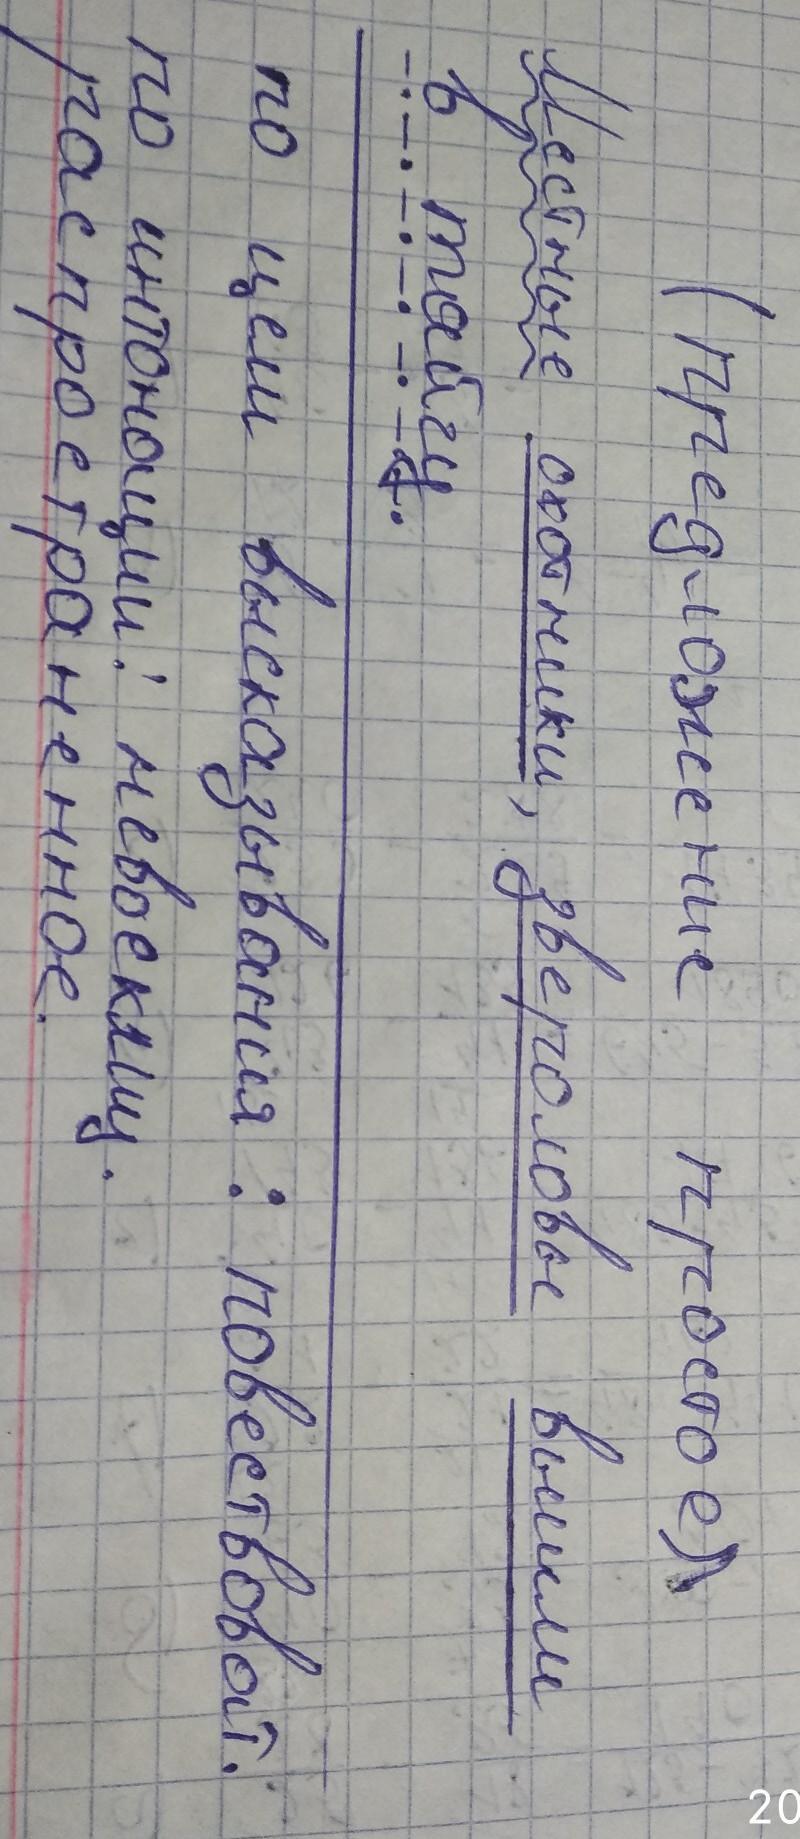 (предложение простое)
Местные охотники, зверловы вышли
в тайгу.
по цели высказывания: повествоват.
по интонации: невосклиц.
распространенное.
20